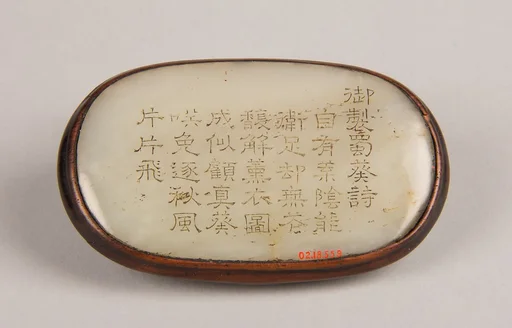 御製蜀葵詩
自有葉陰能
衛足却無花
馥解薰衣圖
成似顧真葵
免逐秋風
片片飛